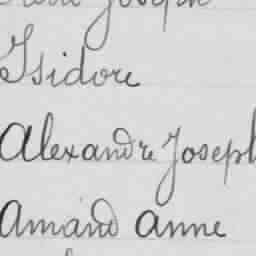 Joseph
Isidore
Alexandre Joseph
Amand Anne